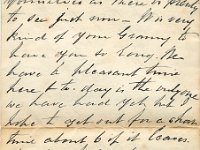 yourselves as there is plenty
to see just now — It is very
kind of your Granny to
have you so long. We
have a pleasant time
here & to-day is the only one
we have had yet we
hope to get out for a short
time about 6 if it leaves.